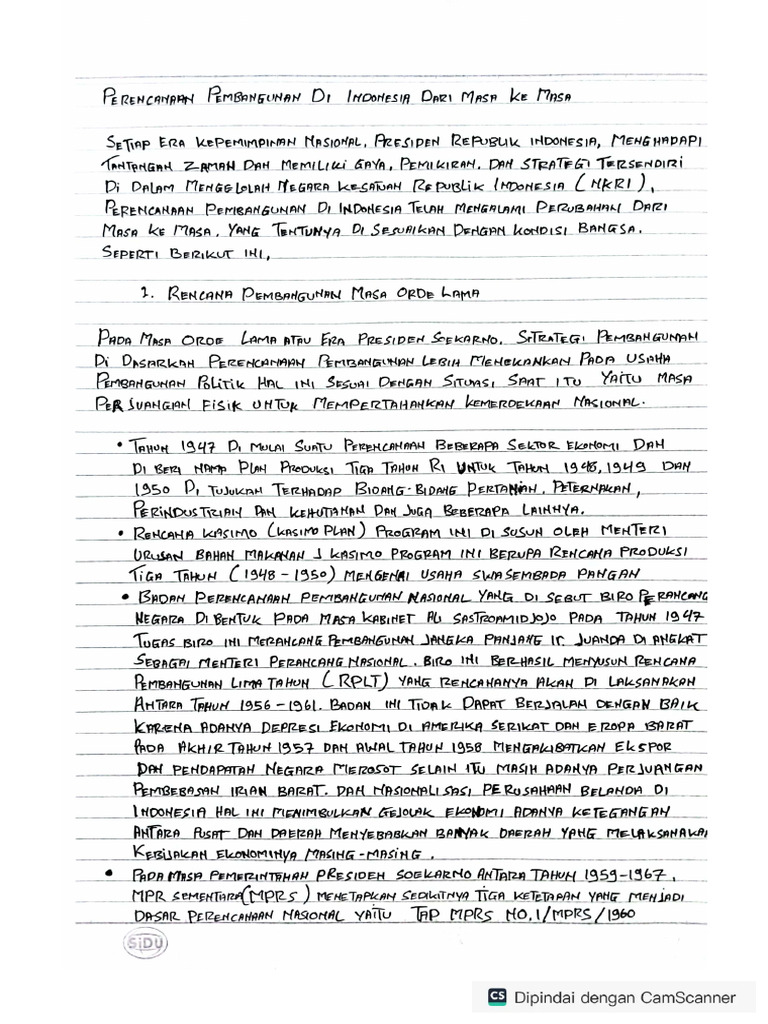 PERENCANAAN PEMBANGUNAN DI INDONESIA DARI MASA KE MASA
SETIAP ERA KEPEMIMPINAN NASIONAL, PRESIDEN REPUBLIK INDONESIA, MENGHADAPI
TANTANGAN ZAMAN DAN MEMILIKI GAYA, PEMIKIRAN, DAN STRATEGI TERSENDIRI
DI DALAM MENGELOLAH NEGARA KESATUAN REPUBLIK INDONESIA (NKRI),
PERENCANAAN PEMBANGUNAN DI INDONESIA TELAH MENGALAMI PERUBAHAN DARI
MASA KE MASA, YANG TENTUNYA DI SESUAIKAN DENGAN KONDISI BANGSA.
SEPERTI BERIKUT INI,
1. RENCANA PEMBANGUNAN MASA ORDE LAMA
PADA MASA ORDE LAMA ATAU ERA PRESIDEN SOEKARNO, SITRATEGI PEMBANGUNAN
DI DASARKAN PERENCANAAN PEMBANGUNAN LEBIH MENEKANKAN PADA USAHA
PEMBANGUNAN POLITIK HAL INI SESUAI DENGAN SITUASI SAAT ITU YAITU MASA
PERJUANGAN FISIK UNTUK MEMPERTAHANKAN KEMERDEKAAN NASIONAL.
• TAHUN 1947 DI MULAI SUATU PERENCANAAN BEBERAPA SEKTOR EKONOMI DAN
DI BERI NAMA PLAN PRODUKSI TIGA TAHUN RI UNTUK TAHUN 1948, 1949 DAN
1950 DI TUJUKAN TERHADAP BIDANG-BIDANG PERTANIAN, PETERNAKAN,
PERINDUSTRIAN DAN KEHUTANAN DAN JUGA BEBERAPA LAINNYA.
• RENCANA KASIMO (KASIMO PLAN) PROGRAM INI DI SUSUN OLEH MENTERI
URUSAN BAHAN MAKANAN J KASIMO PROGRAM INI BERUPA RENCANA PRODUKSI
TIGA TAHUN (1948 - 1950) MENGENAI USAHA SWASEMBADA PANGAN
• BADAN PERENCANAAN PEMBANGUNAN NASIONAL YANG DI SEBUT BIRO PERANCANG
NEGARA DI BENTUK PADA MASA KABINET ALI SASTROAMIDJOJO PADA TAHUN 1947
TUGAS BIRO INI MERANCANG PEMBANGUNAN JANGKA PANJANG Ir. JUANDA DI ANGKAT
SEBAGAI MENTERI PERANCANG NASIONAL. BIRO INI BERHASIL MENYUSUN RENCANA
PEMBANGUNAN LIMA TAHUN (RPLT) YANG RENCANANYA AKAN DI LAKSANAKAN
ANTARA TAHUN 1956 - 1961. BADAN INI TIDAK DAPAT BERJALAN DENGAN BAIK
KARENA ADANYA DEPRESI EKONOMI DI AMERIKA SERIKAT DAN EROPA BARAT
PADA AKHIR TAHUN 1957 DAN AWAL TAHUN 1958 MENGAKIBATKAN EKSPOR
DAN PENDAPATAN NEGARA MEROSOT SELAIN ITU MASIH ADANYA PERJUANGAN
PEMBEBASAN IRIAN BARAT. DAN NASIONALISASI PERUSAHAAN BELANDA DI
INDONESIA HAL INI MENIMBULKAN GEJOLAK EKONOMI ADANYA KETEGANGAN
ANTARA PUSAT DAN DAERAH MENYEBABKAN BANYAK DAERAH YANG MELAKSANAKA
KEBIJAKAN EKONOMINYA MASING-MASING.
• PADA MASA PEMERINTAHAN PRESIDEN SOEKARNO ANTARA TAHUN 1959-1967,
MPR SEMENTARA (MPRS) MENETAPKAN SEDIKITNYA TIGA KETETAPAN YANG MENJADI
DASAR PERENCANAAN NASIONAL YAITU TAP MPRS NO.1/MPRS/1960
SiDU
CS Dipindai dengan CamScanner